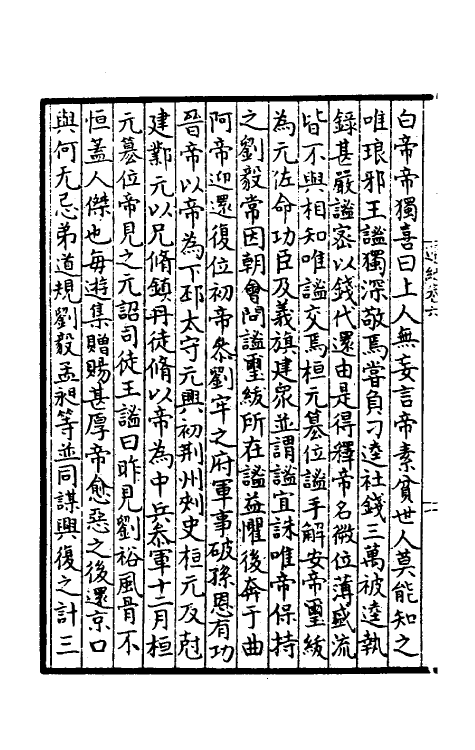 白帝帝獨喜曰上人無妄言帝素貧世人莫能知之
唯琅邪王謐獨深敬焉嘗負刁逵社錢三萬被逵執
錄甚嚴謐密以錢代還由是得釋帝名微位薄盛流
皆不與相知唯謐交焉桓元墓位謐手解安帝璽紱
為元佐命功臣及義旗建衆並謂謐宜誅唯帝保持
之劉毅常因朝會問謐璽紱所在謐益懼後奔于曲
阿帝迎還復位初帝叅劉牢之府軍事破孫恩有功
晉帝以帝為下邳太守元興初荆州刺史桓元反尅
建鄴元以兄脩鎮丹徒脩以帝為中兵叅軍十二月桓
元墓位帝見之元詔司徒王謐曰昨見劉裕風骨不
恒盖人傑也每遊集贈賜甚厚帝愈惡之後還京口
與何无忌弟道規劉毅孟昶等並同謀興復之計三